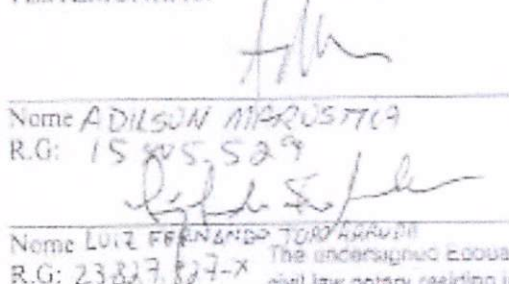 Nome ADILSON MARUSTICA
R.G: 15 805.529
Nome LUIZ FERNANDO
R.G: 23.827.827-X
The undersigned Edoua
civil law notary residing i